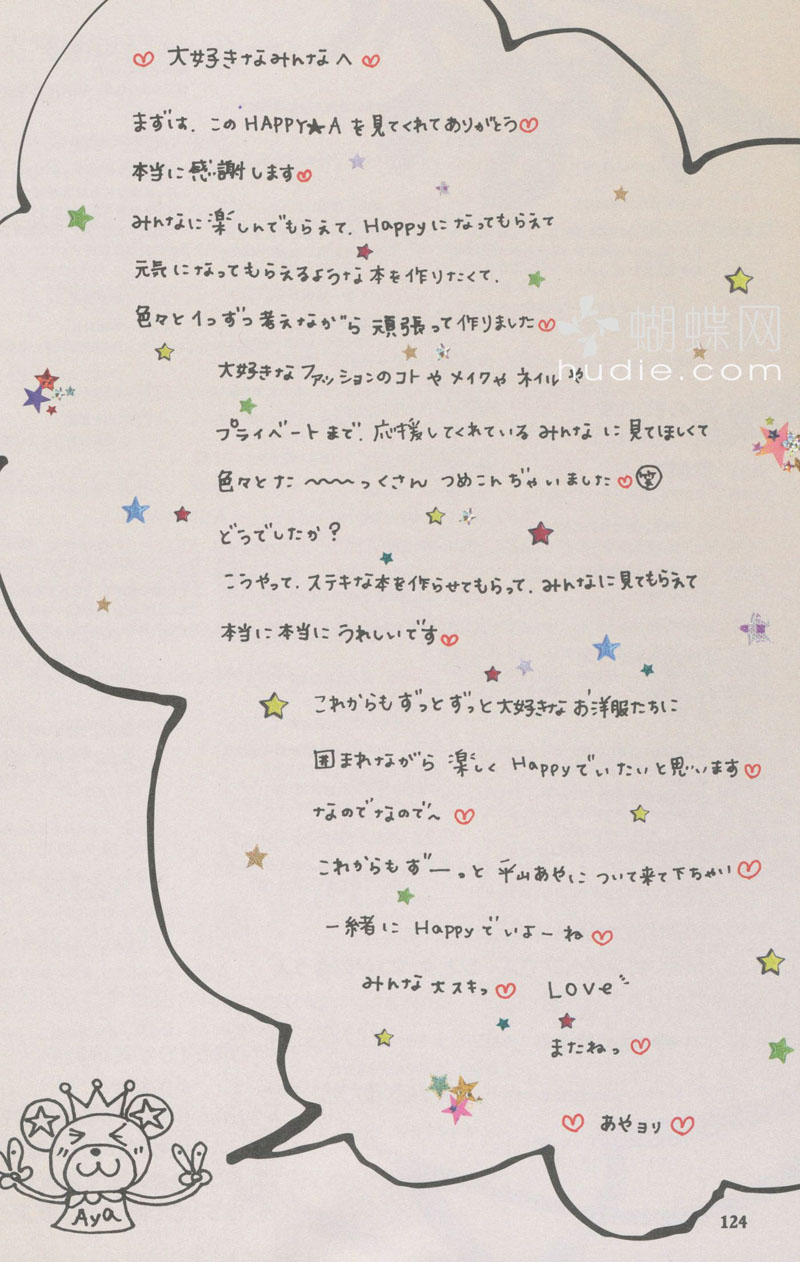 ♡ 大好きなみんなへ ♡
まずは、この HAPPY★A を見てくれてありがとう♡
本当に感謝します♡
みんなに楽しんでもらえて、Happyになってもらえて
元気になってもらえるような本を作りたくて、
色々と1つずつ考えながら 頑張って作りました♡
蝴蝶网
hudie.com
大好きな ファッションのコトや メイクや ネイルや
プライベートまで、応援してくれている みんな に見てほしくて
色々とた〜〜〜っくさん つめこんぢゃいました♡㊗笑
どうでしたか?
こうやって、ステキな本を作らせてもらって、みんなに見てもらえて
本当に本当に うれしいです♡
これからも ずっとずっと大好きな お洋服たちに
囲まれながら 楽しく Happyでいたいと思います♡
なのでなので〜 ♡
これからも ずーっと 平山あやに ついて来て下ちゃい♡
一緒に Happyでいよーね ♡
みんな大スキっ♡ LOVe
またねっ ♡
♡ あやヨリ ♡
Aya
124